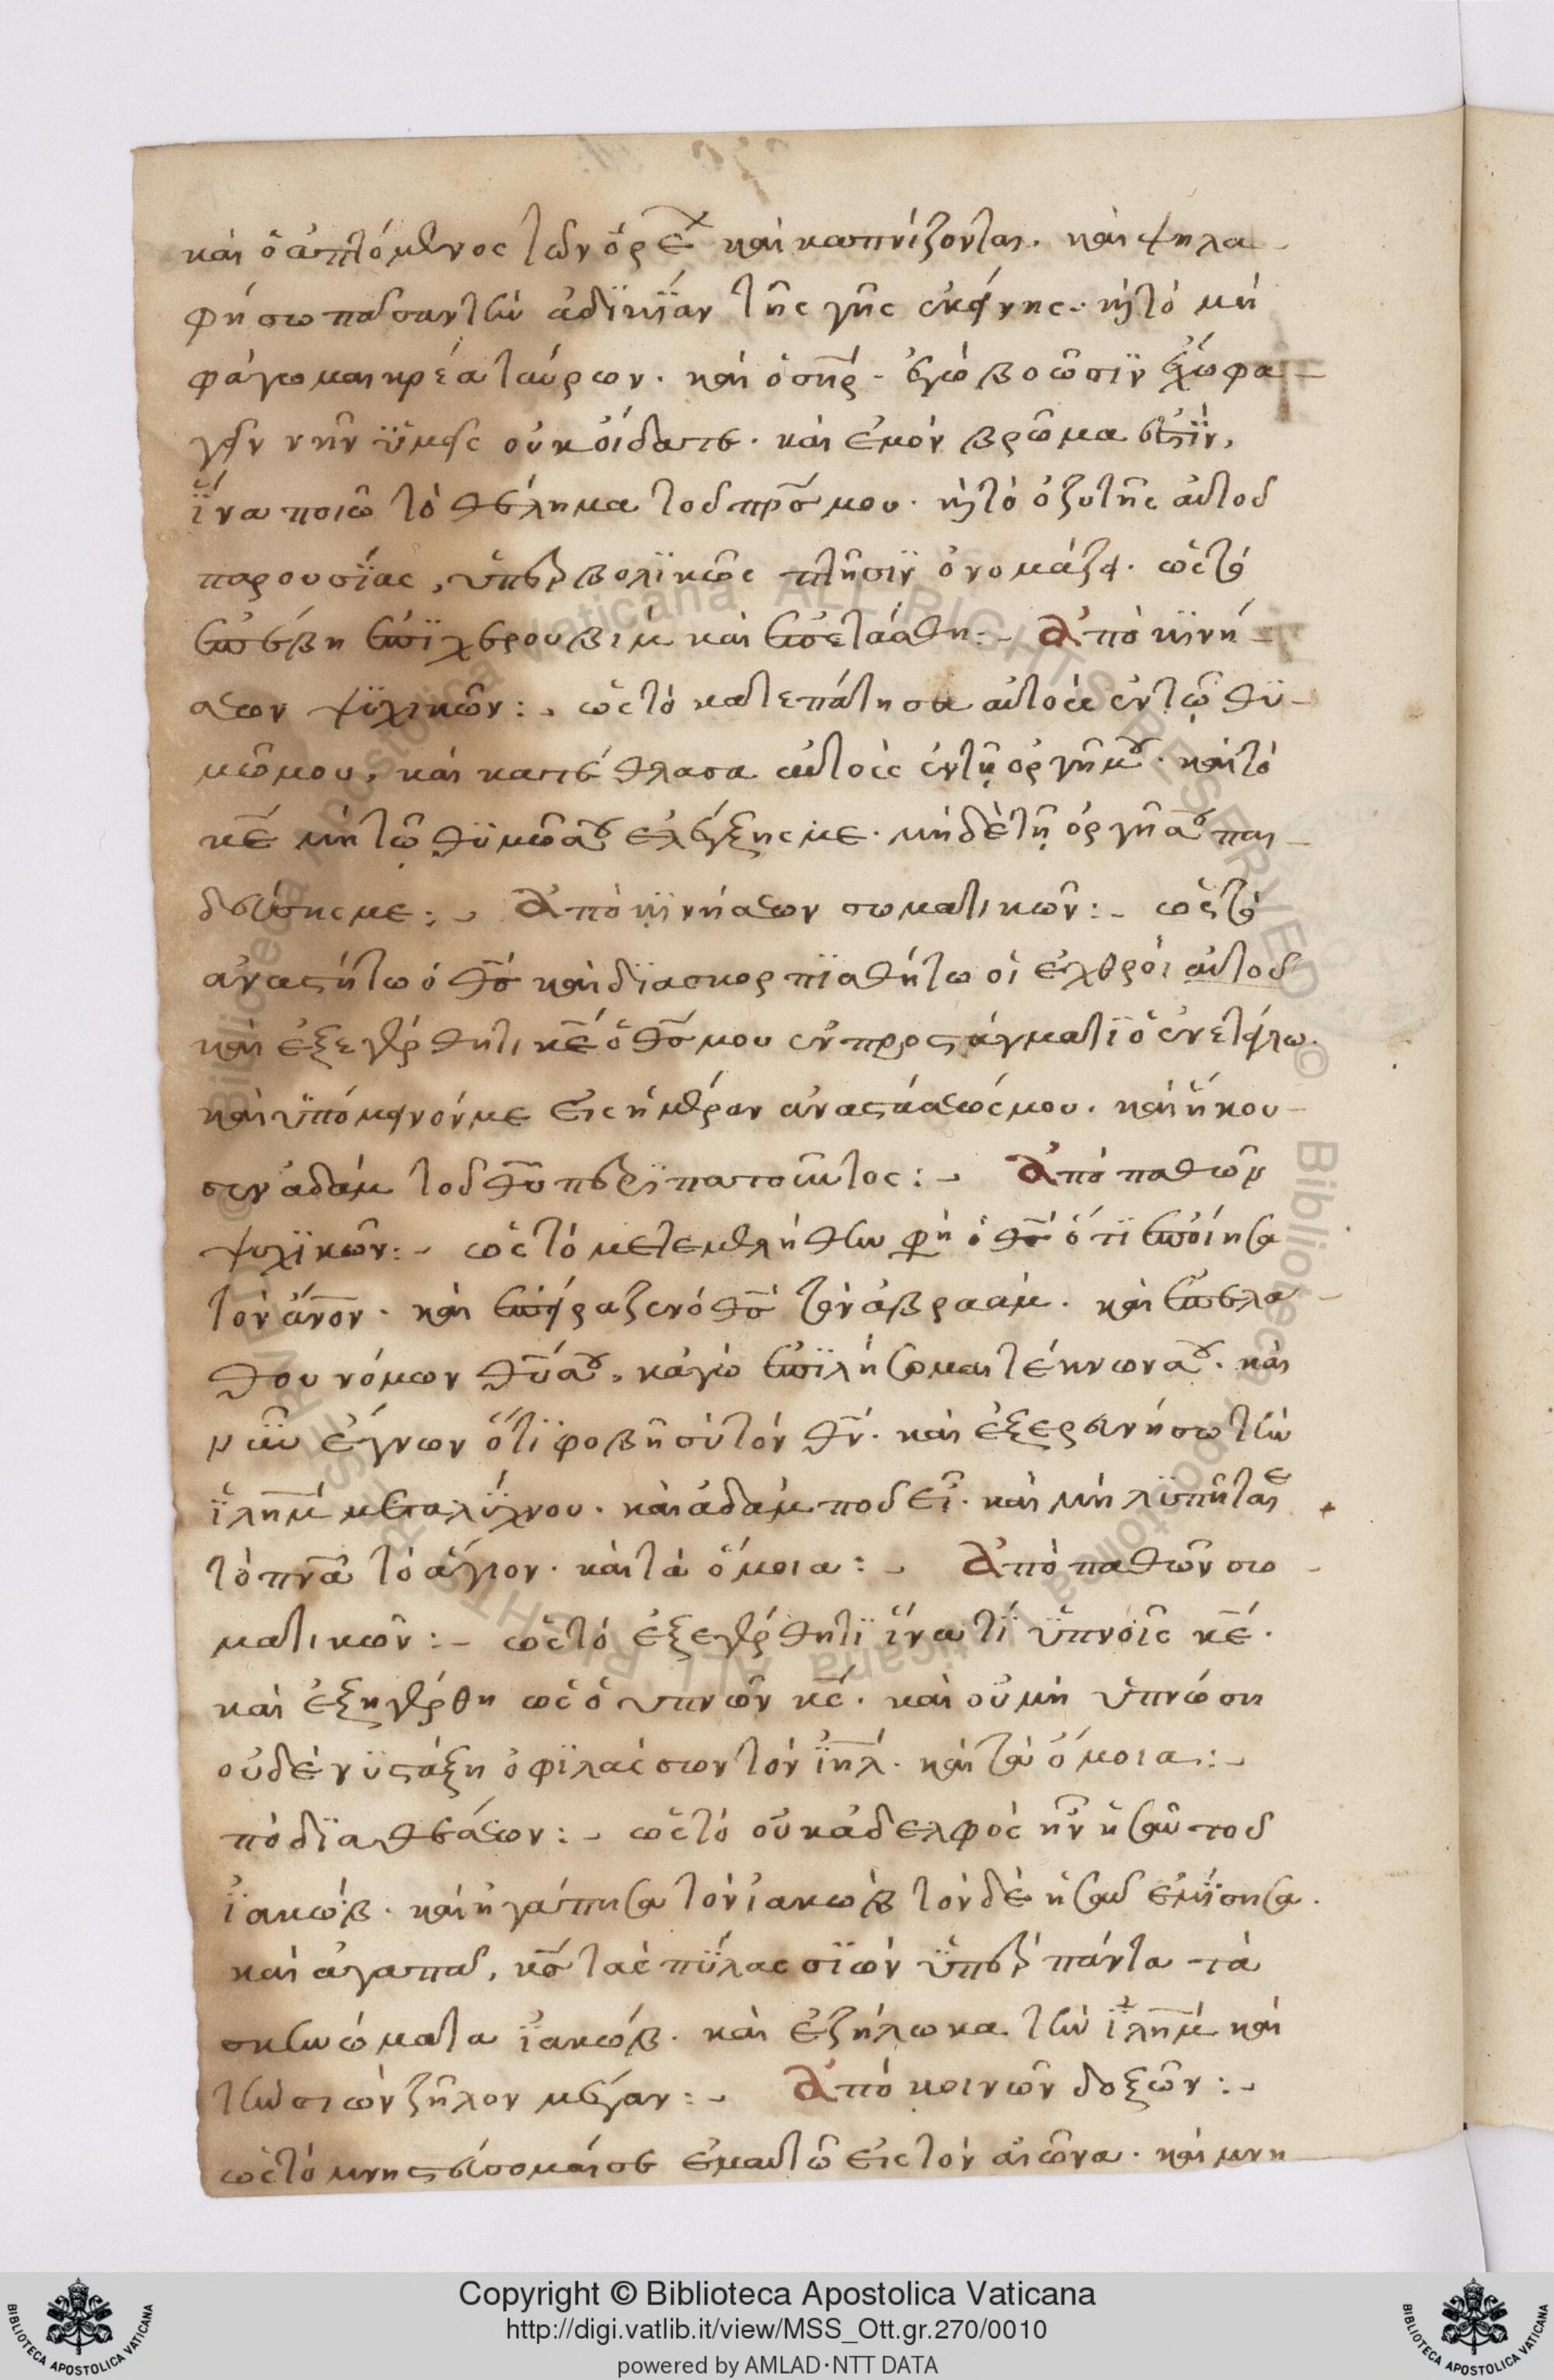 καὶ ὁ ἁπτόμενος τῶν ὀρέχ καὶ καπνίζονται. καὶ ψηλα
φήσω πᾶσαν τὴν ἀδϊκῒαν τῆς γῆς ἐκείνης. κ τὸ μὴ
φάγωμαι κρέα ταύρων. καὶ ὁ σηρ. ἐγὼ βρῶσϊν ἔχω φα
γεῖν ἣν ϋμεῖς οὐκ οἴδατε. καὶ ἐμὸν βρῶμα ἐστϊν,
ϊνα ποιῶ τὸ θέλημα τοῦ πρσ μου. κ τὸ ὀξυτῆς αὐτοῦ
παρουσίας, ὑπερβολϊκῶς πτῆσϊν ὀνομάζει. ὡς τὸ
ἐπέβη ἐπῒ χερουβιμ καὶ ἐπετάσθη:- Ἀπὸ κϊνή
σεων ψϋχικῶν:- ὡς τὸ κατεπάτησα αὐτοὺς ἐν τῷ θϋ
μῷ μου, καὶ κατέθλασα αὐτοὺς ἐν τῇ ὀργῇ μου. καὶ τὸ
κε μὴ τῷ θϋμῷ σου ἐλέγξης με. μὴ δὲ τῇ ὀργῇ σου παι
δεύσης με:- Ἀπὸ κϊνήσεων σωματικῶν:- ὡς τὸ
ἀναστήτω ὁ θσ καὶ δϊασκορπϊσθήτω οἱ ἐχθροὶ αὐτοῦ
καὶ ἐξεγέρθητι κε ὁ θσ μου ἐν προστάγματϊ ὃ ἐνετείλω.
καὶ ὑπόμεινόν με εἰς ἡμέραν ἀναστάσεώς μου. καὶ ἤκου
σεν ἀδὰμ τοῦ θυ περϊπατοῦντος:- Ἀπὸ παθῶν
ψυχϊκῶν:- ὡς τὸ μετεμελήθην φη ὁ θσ ὅτϊ ἐποίησα
τὸν ανον. καὶ ἐπείραζεν ὁ θσ τὸν ἀβραάμ. καὶ ἐπελά
θου νόμων θυ σου, κἀγὼ ἐπϊλήσομαι τέκνων σου. καὶ
νῦν ἔγνων ὅτϊ φοβῆ σὺ τὸν θν. καὶ ἐξερευνήσω τὴν
ϊλημ μετα λύχνου. καὶ ἀδὰμ ποῦ εἶ. καὶ μὴ λϋπῆται
τὸ πνα τὸ ἅγιον. καὶ τὰ ὅμοια:- Ἀπὸ παθῶν σω
ματικῶν:- ὡς τὸ ἐξεγέρθητϊ ἵνα τϊ ὑπνοῖς κε.
καὶ ἐξηγέρθη ὡς ὁ ὑπνῶν κσ. καὶ οὐ μὴ ὑπνώση
οὐδὲ νϋστάξη ὁ φϊλάσσων τὸν ϊηλ. καὶ τὰ ὅμοια:-
πὸ δϊαθέσεων:- ὡς τὸ οὐκ ἀδελφὸς ἦν ἡσαῦ τοῦ
ϊακώβ. καὶ ἠγάπησα τὸν ϊακὼβ τὸν δὲ ἡσαῦ ἐμϊσησα.
καὶ ἀγαπᾶ, κσ τὰς πϋλας σϊὼν ὑπὲρ πάντα τὰ
σκηνώματα ϊακώβ. καὶ ἐζήλωκα τὴν ϊλημ καὶ
τὴν σιὼν ζῆλον μέγαν:- Ἀπὸ κοινῶν δοξῶν:-
ὡς τὸ μνηστεύσομαί σε ἐμαυτῷ εἰς τὸν αἰῶνα. καὶ μνη
Copyright © Biblioteca Apostolica Vaticana
http://digi.vatlib.it/view/MSS_Ott.gr.270/0010
powered by AMLAD·NTT DATA